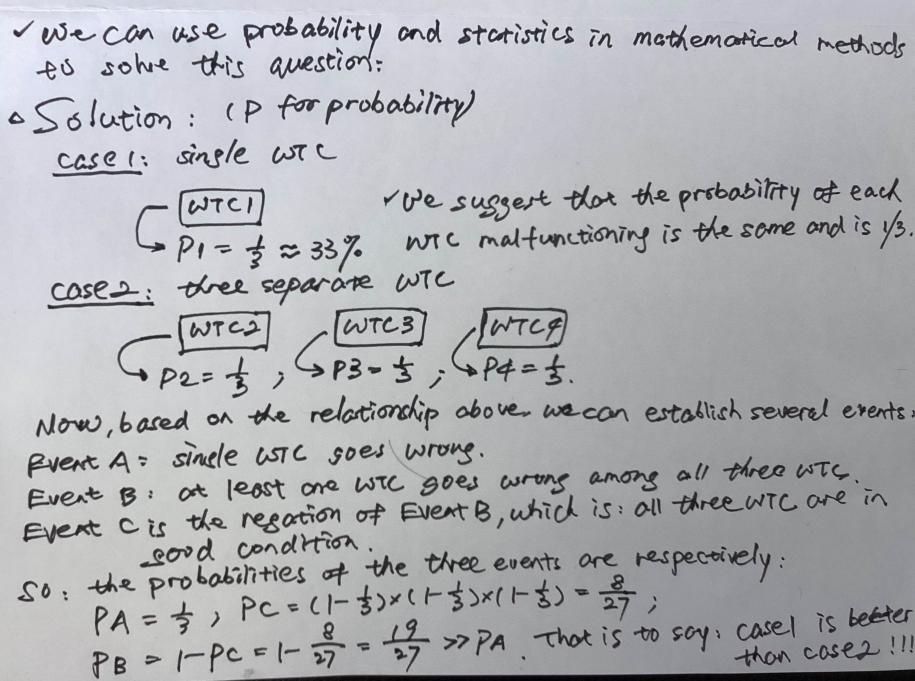 ✓ We can use probability and statistics in mathematical methods
to solve this question:
△ Solution: (P for probability)
case 1: single WTC
WTC1
✓ We suggest that the probability of each
P1 = 1/3 ≈ 33%
WTC malfunctioning is the same and is 1/3.
case 2: three separate WTC
WTC2 WTC3 WTC4
P2 = 1/3 ; P3 = 1/3 ; P4 = 1/3.
Now, based on the relationship above, we can establish several events:
Event A: single WTC goes wrong.
Event B: at least one WTC goes wrong among all three WTC.
Event C is the negation of Event B, which is: all three WTC are in
good condition.
So: the probabilities of the three events are respectively:
PA = 1/3 , PC = (1-1/3)×(1-1/3)×(1-1/3) = 8/27 ;
PB = 1-PC = 1- 8/27 = 19/27 >> PA. That is to say: case1 is better
than case2 !!!